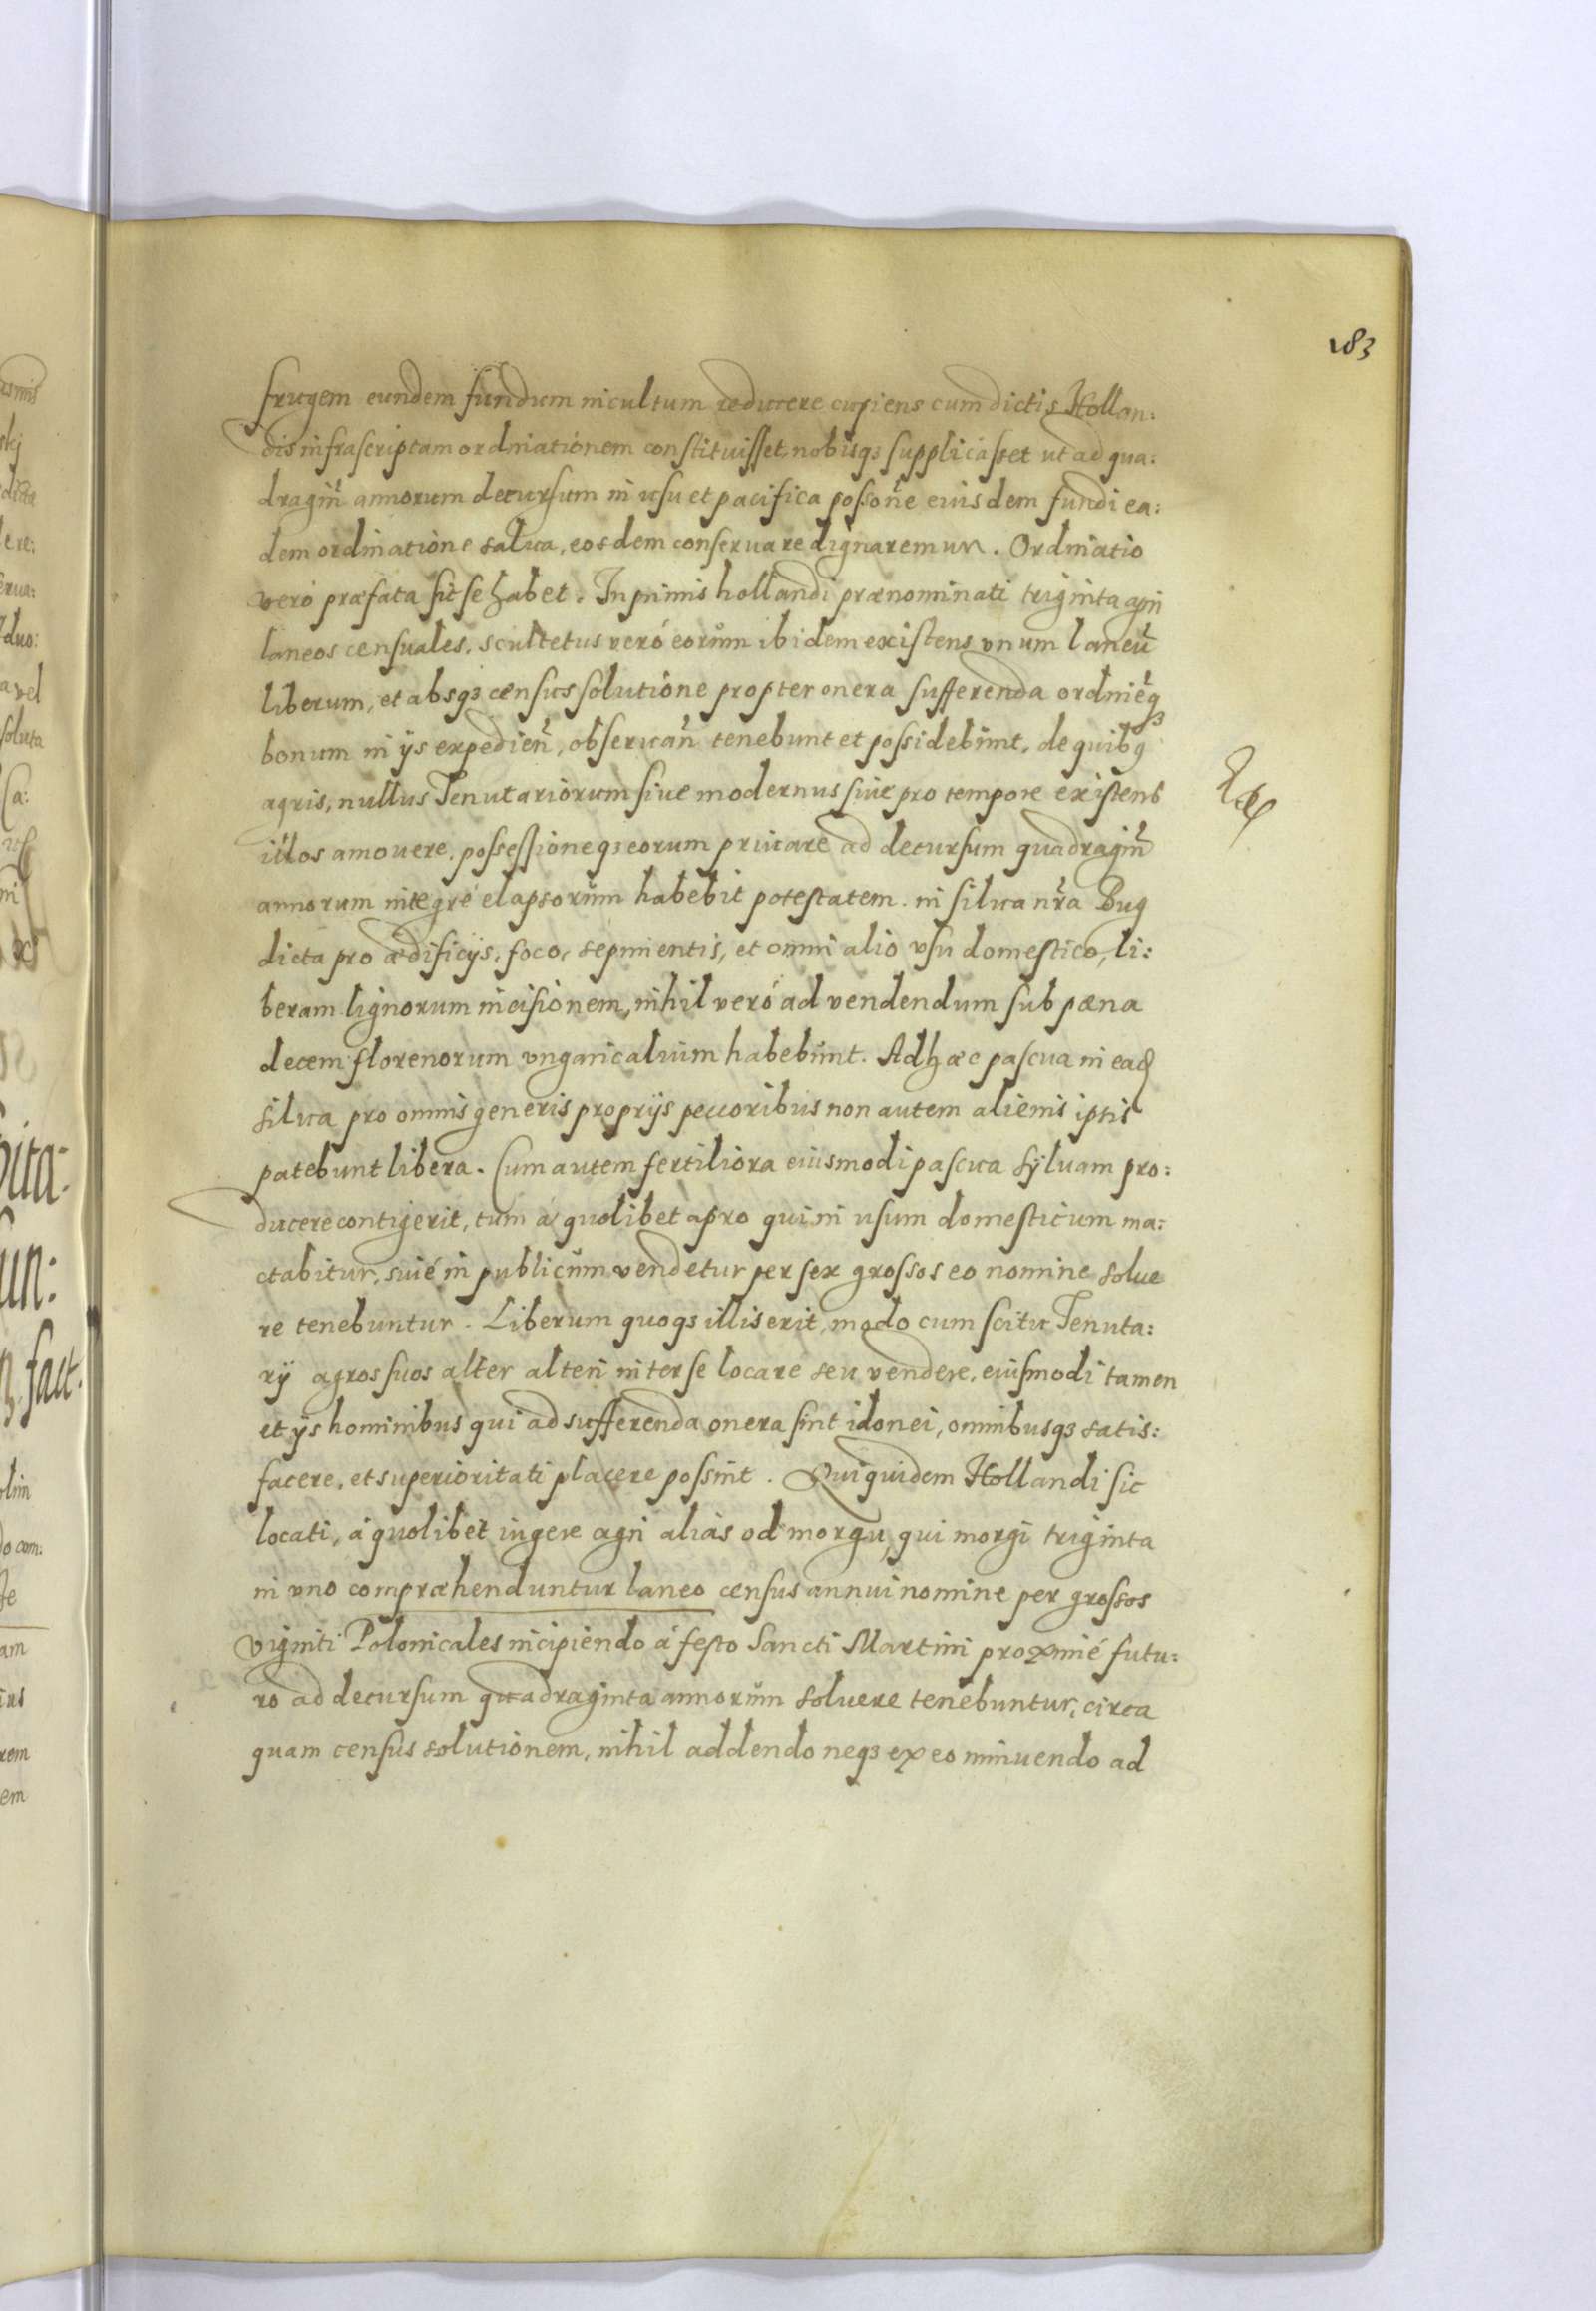 183
frugem eundem fundum incultum reducere cupiens cum dictis Hollan:
dis infrascriptam ordinationem constituisset, nobisq3 supplicasset ut ad qua:
dragin̄ annorum decursum in usu et pacifica possōne eiusdem fundi ea:
dem ordinatione salua, eosdem conseruare dignaremur. Ordinatio
veró præfata sic se habet. In primis hollandi prænominati triginta agri
laneos censuales, scultetus veró eorum ibidem existens vnum laneū
liberum, et absq3 census solutione propter onera sufferenda ordineq3
bonum in ijs expedien̄, obseruan̄ tenebunt et possidebunt, de quibq
agris, nullus Tenutariorum siue modernus siue pro tempore existens
illos amouere, possessioneq3 eorum priuare ad decursum quadragin̄
annorum integré elapsorum habebit potestatem. in silua nr̄a Bug
dicta pro ædificijs, foco, sepimentis, et omni alio vsu domestico, li:
beram lignorum incisionem, nihil veró ad vendendum sub pæna
decem florenorum vngaricalium habebunt. Ad hæc pascua in ead
silua pro omnis generis proprijs peccoribus non autem alienis ipsis
patebunt libera. Cum autem fertiliora eiusmodi pascua syluam pro:
ducere contigerit, tum á quolibet apro qui in usum domesticum ma:
ctabitur, siué in publicum vendetur per sex grossos eo nomine solue
re tenebuntur. Liberum quoq3 illis erit, modo cum scitu Tenuta:
rij agros suos alter alteri inter se locare seu vendere, eiusmodi tamen
et ijs hominibus qui ad sufferenda onera sint idonei, omnibusq3 satis:
facere, et superioritati placere possint. Qui quidem Hollandi sic
locati, á quolibet iugere agri aliás od morgu, qui morgi triginta
in vno compræhenduntur laneo census annui nomine per grossos
viginti Polonicales incipiendo á festo Sancti Martini proximé futu:
ro ad decursum quadraginta annorum soluere tenebuntur, circa
quam census solutionem, nihil addendo neq3 ex eo minuendo ad